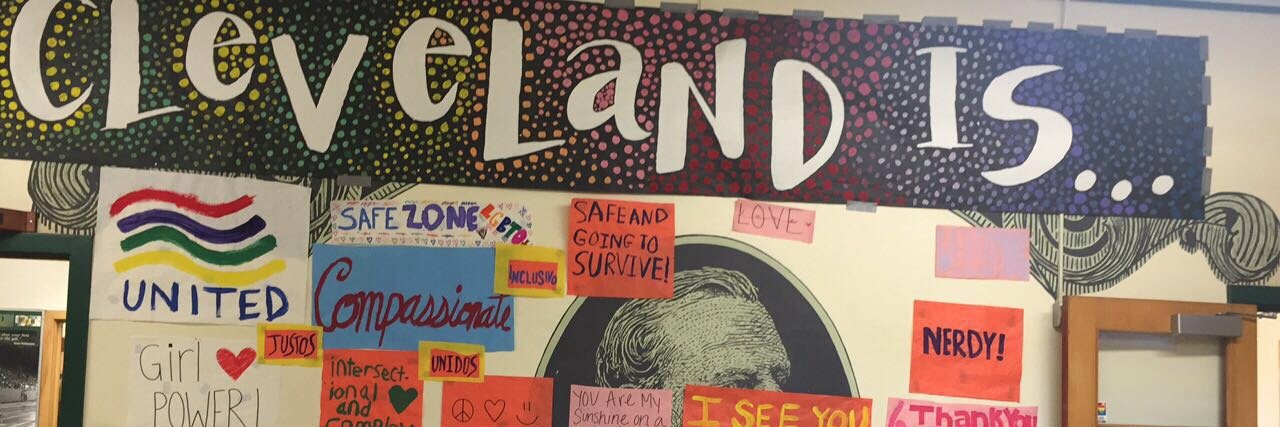 Cleveland Is...
UNITED
SAFE ZONE LGBTQ
Compassionate
INCLUSIVO
SAFE AND
GOING TO
SURVIVE!
LOVE
NERDY!
Girl
POWER!
JUSTOS
intersect-
ional
and
UNIDOS
You Are My
Sunshine on a
I SEE YOU
Thank You